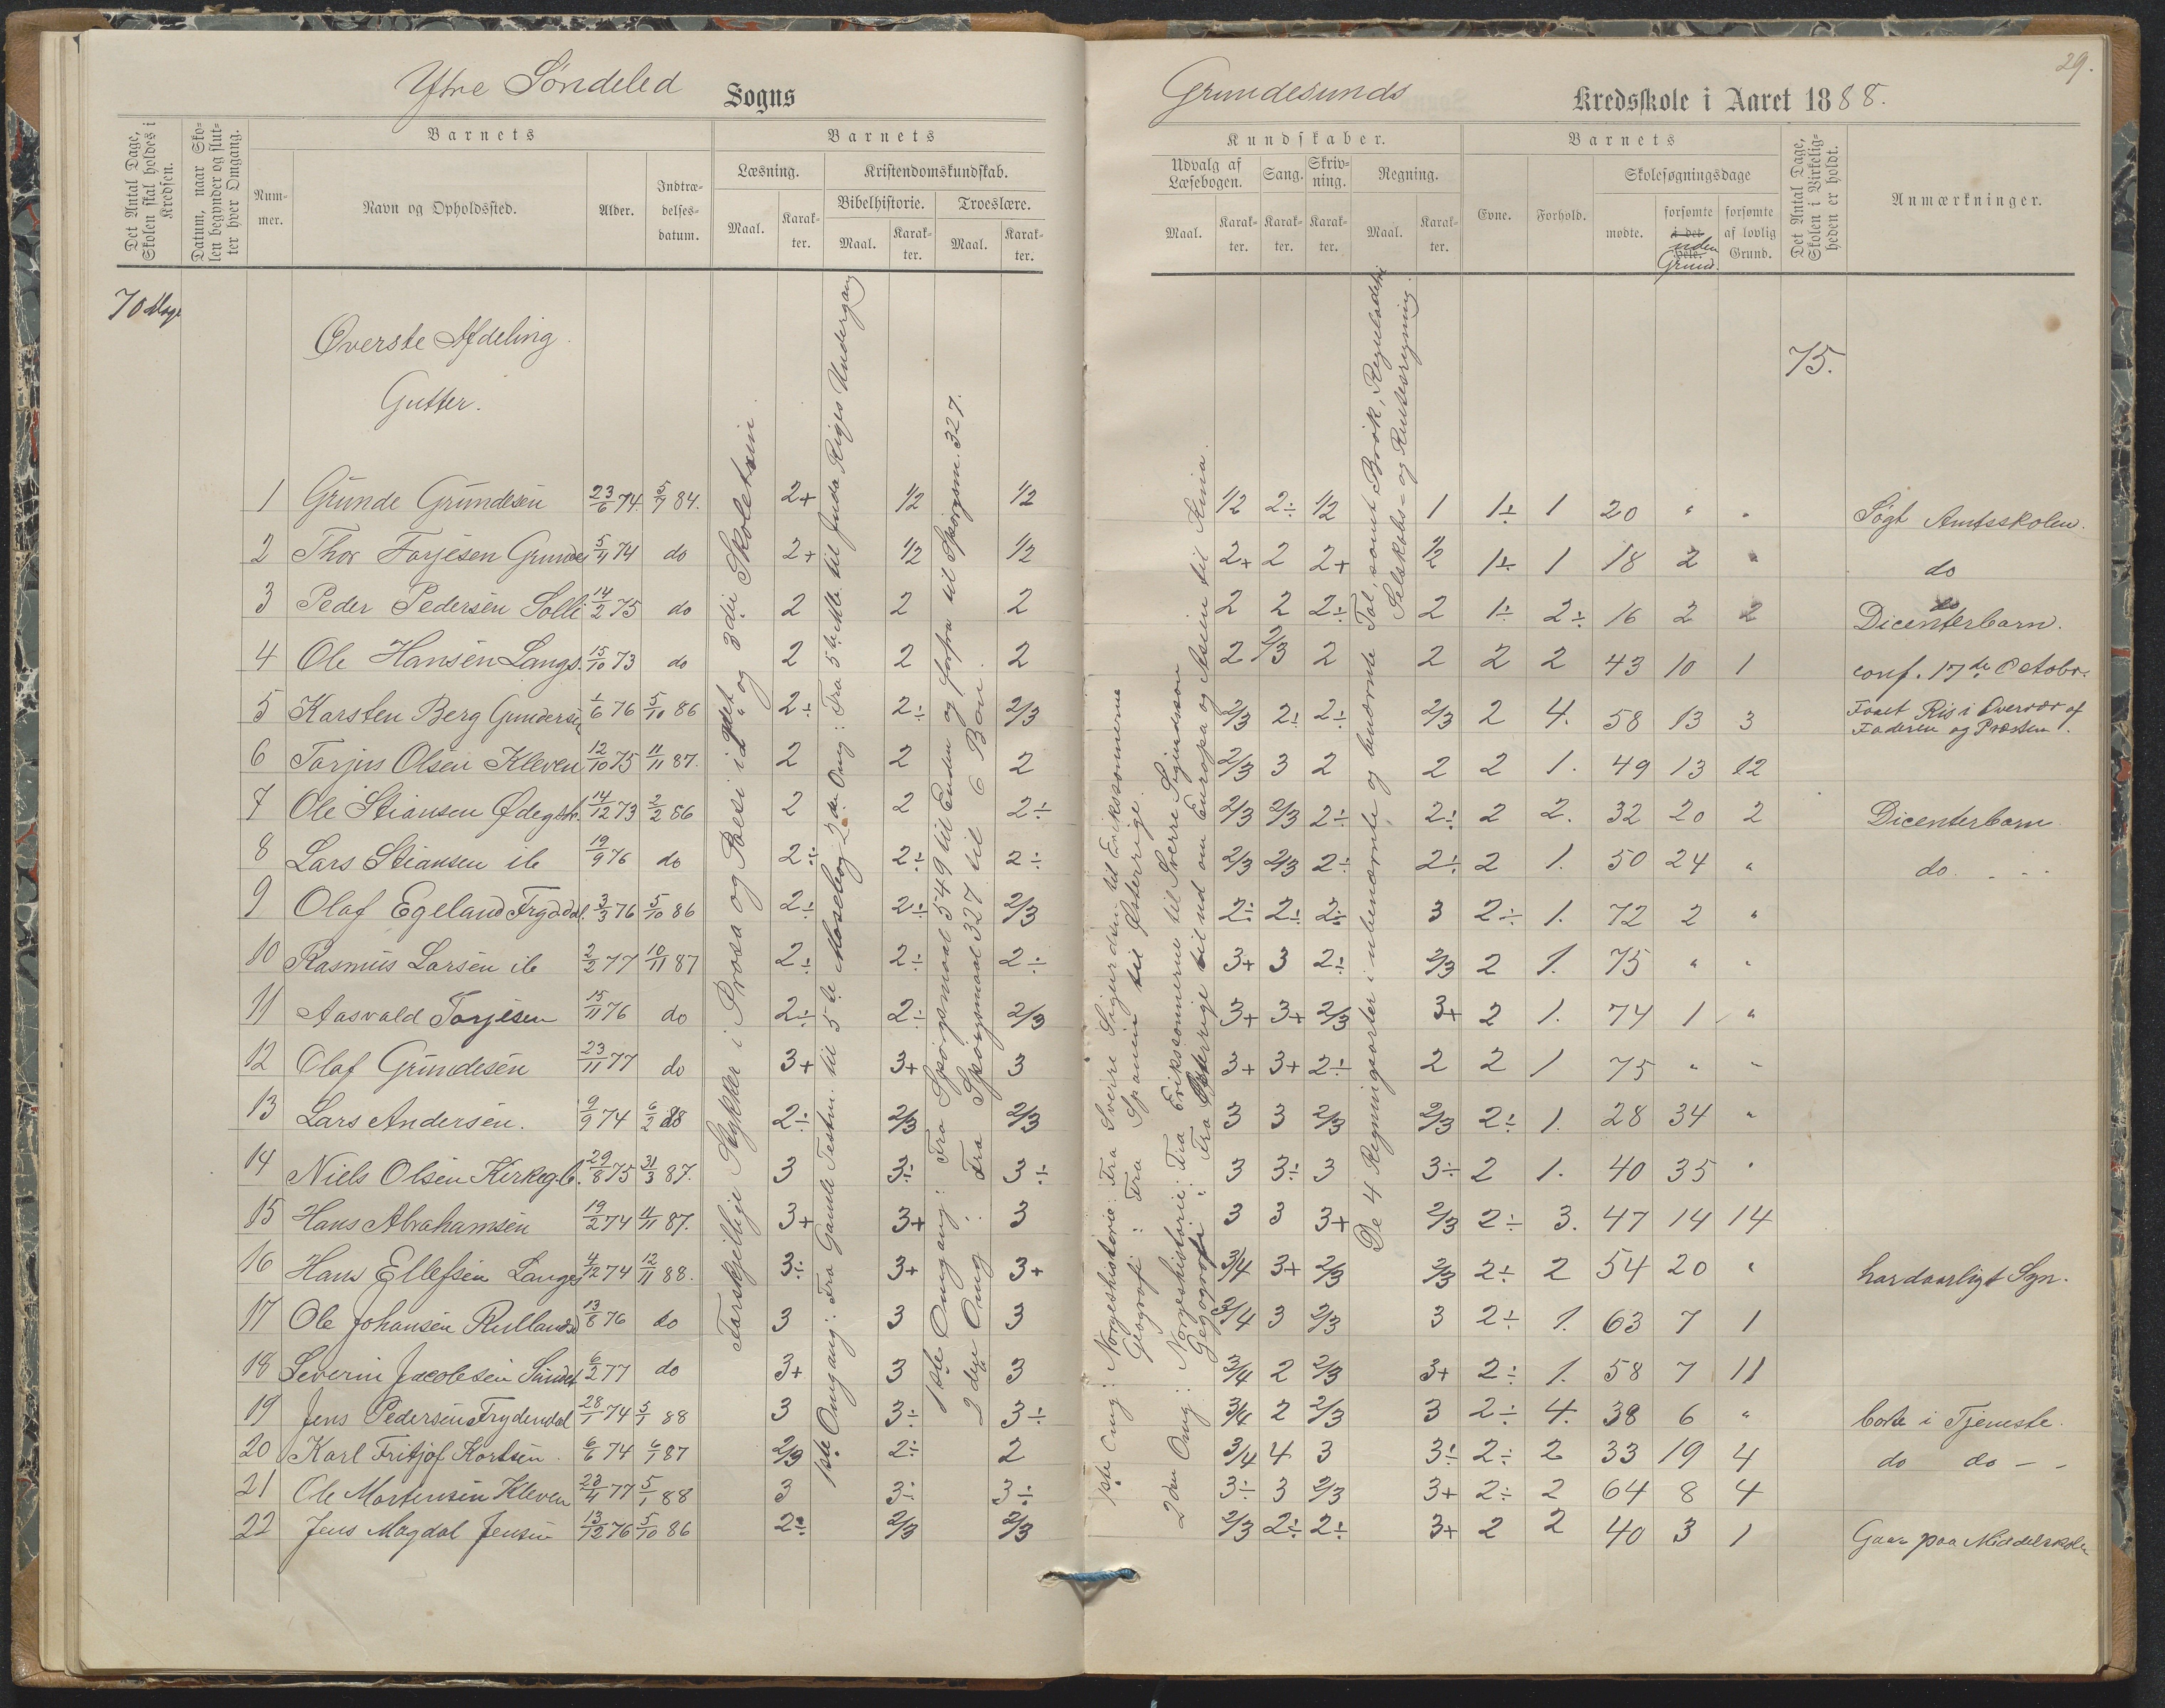 29.
Ytre Söndeled Sogns
Grundesunds Kredsskole i Aaret 1888.
Det Antal Dage, Skolen skal holdes i Kredsen.
Datum, naar Skolen begynder og slutter hver Omgang.
Barnets
Nummer.
Navn og Opholdssted.
Alder.
Indtrædelsesdatum.
Barnets
Læsning.
Maal.
Karakter.
Kristendomskundskab.
Bibelhistorie.
Maal.
Karakter.
Troeslære.
Maal.
Karakter.
Kundskaber.
Udvalg af Læsebogen.
Maal.
Karakter.
Sang.
Karakter.
Skrivning.
Karakter.
Regning.
Maal.
Karakter.
Barnets
Evne.
Forhold.
Skolesøgningsdage
mødte.
forsømte i det hele.
uden Grund.
forsømte af lovlig Grund.
Det Antal Dage, Skolen i Virkeligheden er holdt.
Anmærkninger.
70 Dage
Øverste Afdeling.
Gutter.
75.
1 Grunde Grundesen 23/6 74. 5/7 84. 2+ 1/2 1/2 1/2 2÷ 1/2 1 1÷ 1 20 " " Søgt Amtsskolen.
2 Thor Torjesen 5/11 74 do 2+ 1/2 1/2 2+ 2 2+ 1/2 1÷ 1 18 2 " do
3 Peder Pedersen Solli 14/2 75 do 2 2 2 2 2 2÷ 2 1÷ 2÷ 16 2 2 do Dicenterbarn.
4 Ole Hansen Langs. 15/10 73 do 2 2 2 2 2/3 2 2 2 2 43 10 1 conf. 17de Octobr.
5 Karsten Berg Gundersen 1/6 76 5/10 86 2÷ 2÷ 2/3 2/3 2÷ 2÷ 2/3 2 4. 58 13 3 Faaet Ris i Overvær af Faderen og Præsten.
6 Torjus Olsen Kleven 12/10 75 11/11 87. 2 2 2 2/3 3 2 2 2 1. 49 13 12
7 Ole Stiansen Ødegsk. 14/12 73 2/2 86 2 2 2÷ 2/3 2/3 2÷ 2÷ 2 2. 32 20 2 Dicenterbarn
8 Lars Stiansen ib 19/9 76 do 2÷ 2÷ 2÷ 2/3 2/3 2÷ 2÷ 2 1. 50 24 " do
9 Olaf Egeland Fryddal. 3/3 76 5/10 86 2÷ 2÷ 2/3 2÷ 2÷ 2÷ 3 2÷ 1. 72 2 "
10 Rasmus Larsen ib 2/2 77 10/11 87 2÷ 2÷ 2÷ 3+ 3 2÷ 2/3 2 1. 75 " "
11 Aasvald Torjesen 15/11 76 do 2÷ 2÷ 2/3 3+ 3+ 2/3 3+ 2 1. 74 1 "
12 Olaf Grundesen 23/11 77 do 3+ 3+ 3 3+ 3+ 2÷ 2 2 1 75 " "
13 Lars Andersen. 9/9 74 6/2 88 2÷ 2/3 2/3 3 3 2/3 2/3 2÷ 1. 28 34 "
14 Niels Olsen Kirkeg.b. 29/8 75 31/3 87. 3 3÷ 3÷ 3 3÷ 3 3÷ 2 1. 40 35 "
15 Hans Abrahamsen 19/2 74 11/11 87. 3+ 3+ 3 3 3 3+ 2/3 2÷ 3. 47 14 14
16 Hans Ellefsen Langes 4/12 74 12/11 88. 3÷ 3+ 3+ 3/4 3+ 2/3 2/3 2÷ 2 54 20 " har daarligt Syn.
17 Ole Johansen 13/8 76 do 3 3 3 3/4 3 2/3 3 2÷ 1. 63 7 1
18 Severin Jacobsen Sundet 6/2 77 do 3+ 3 3 3/4 2 2/3 3+ 2÷ 1. 58 7 11
19 Jens Pedersen Frydendal 28/1 74 5/1 88 3 3÷ 3÷ 3/4 2 2/3 3 2÷ 4. 38 6 " borte i Tjeneste.
20 Karl Fritjof Kortsen. 6/6 74 6/1 87 2/3 2÷ 2 3/4 4 3 3÷ 2÷ 2 33 19 4 do do
21 Ole Mortensen Kleven 23/4 77 5/1 88 3 3÷ 3÷ 3÷ 3 2/3 3+ 2÷ 2 64 8 4
22 Jens Magdal Jensen 13/12 76 5/10 86 2÷ 2/3 2/3 2/3 2÷ 2÷ 3+ 2 2 40 3 1 Gaar paa Middelskolen
Forskjellige Stykker i Prosa og Poesi i 2det og 3die Skoletrin.
1ste Omgang: Fra Gamle Testm. til 5te Mosebog 2den Omg: Fra 5te Mb. til Juda Riges Undergang
1ste Omgang: Fra Spørgsmaal 549 til Enden og forfra til Spørgsm. 327.
2den Omg: Fra Spørgsmaal 327 til 6 Bøn.
1ste Omg: Norgeshistorie: Fra Sverre Sigurdsøn til Erikssønnerne
Geografi: Fra Spanien til Østerrige.
2den Omg: Norgeshistorie: Fra Erikssønnerne til Sverre Sigurdssøn
Geografi: Fra Østerrige til ud om Europa og Asien til Kina.
De 4 Regningsarter i ubenævnte og benævnte Tal, samt Brøk, Reguladetri
Selskabs- og Rentesregning.